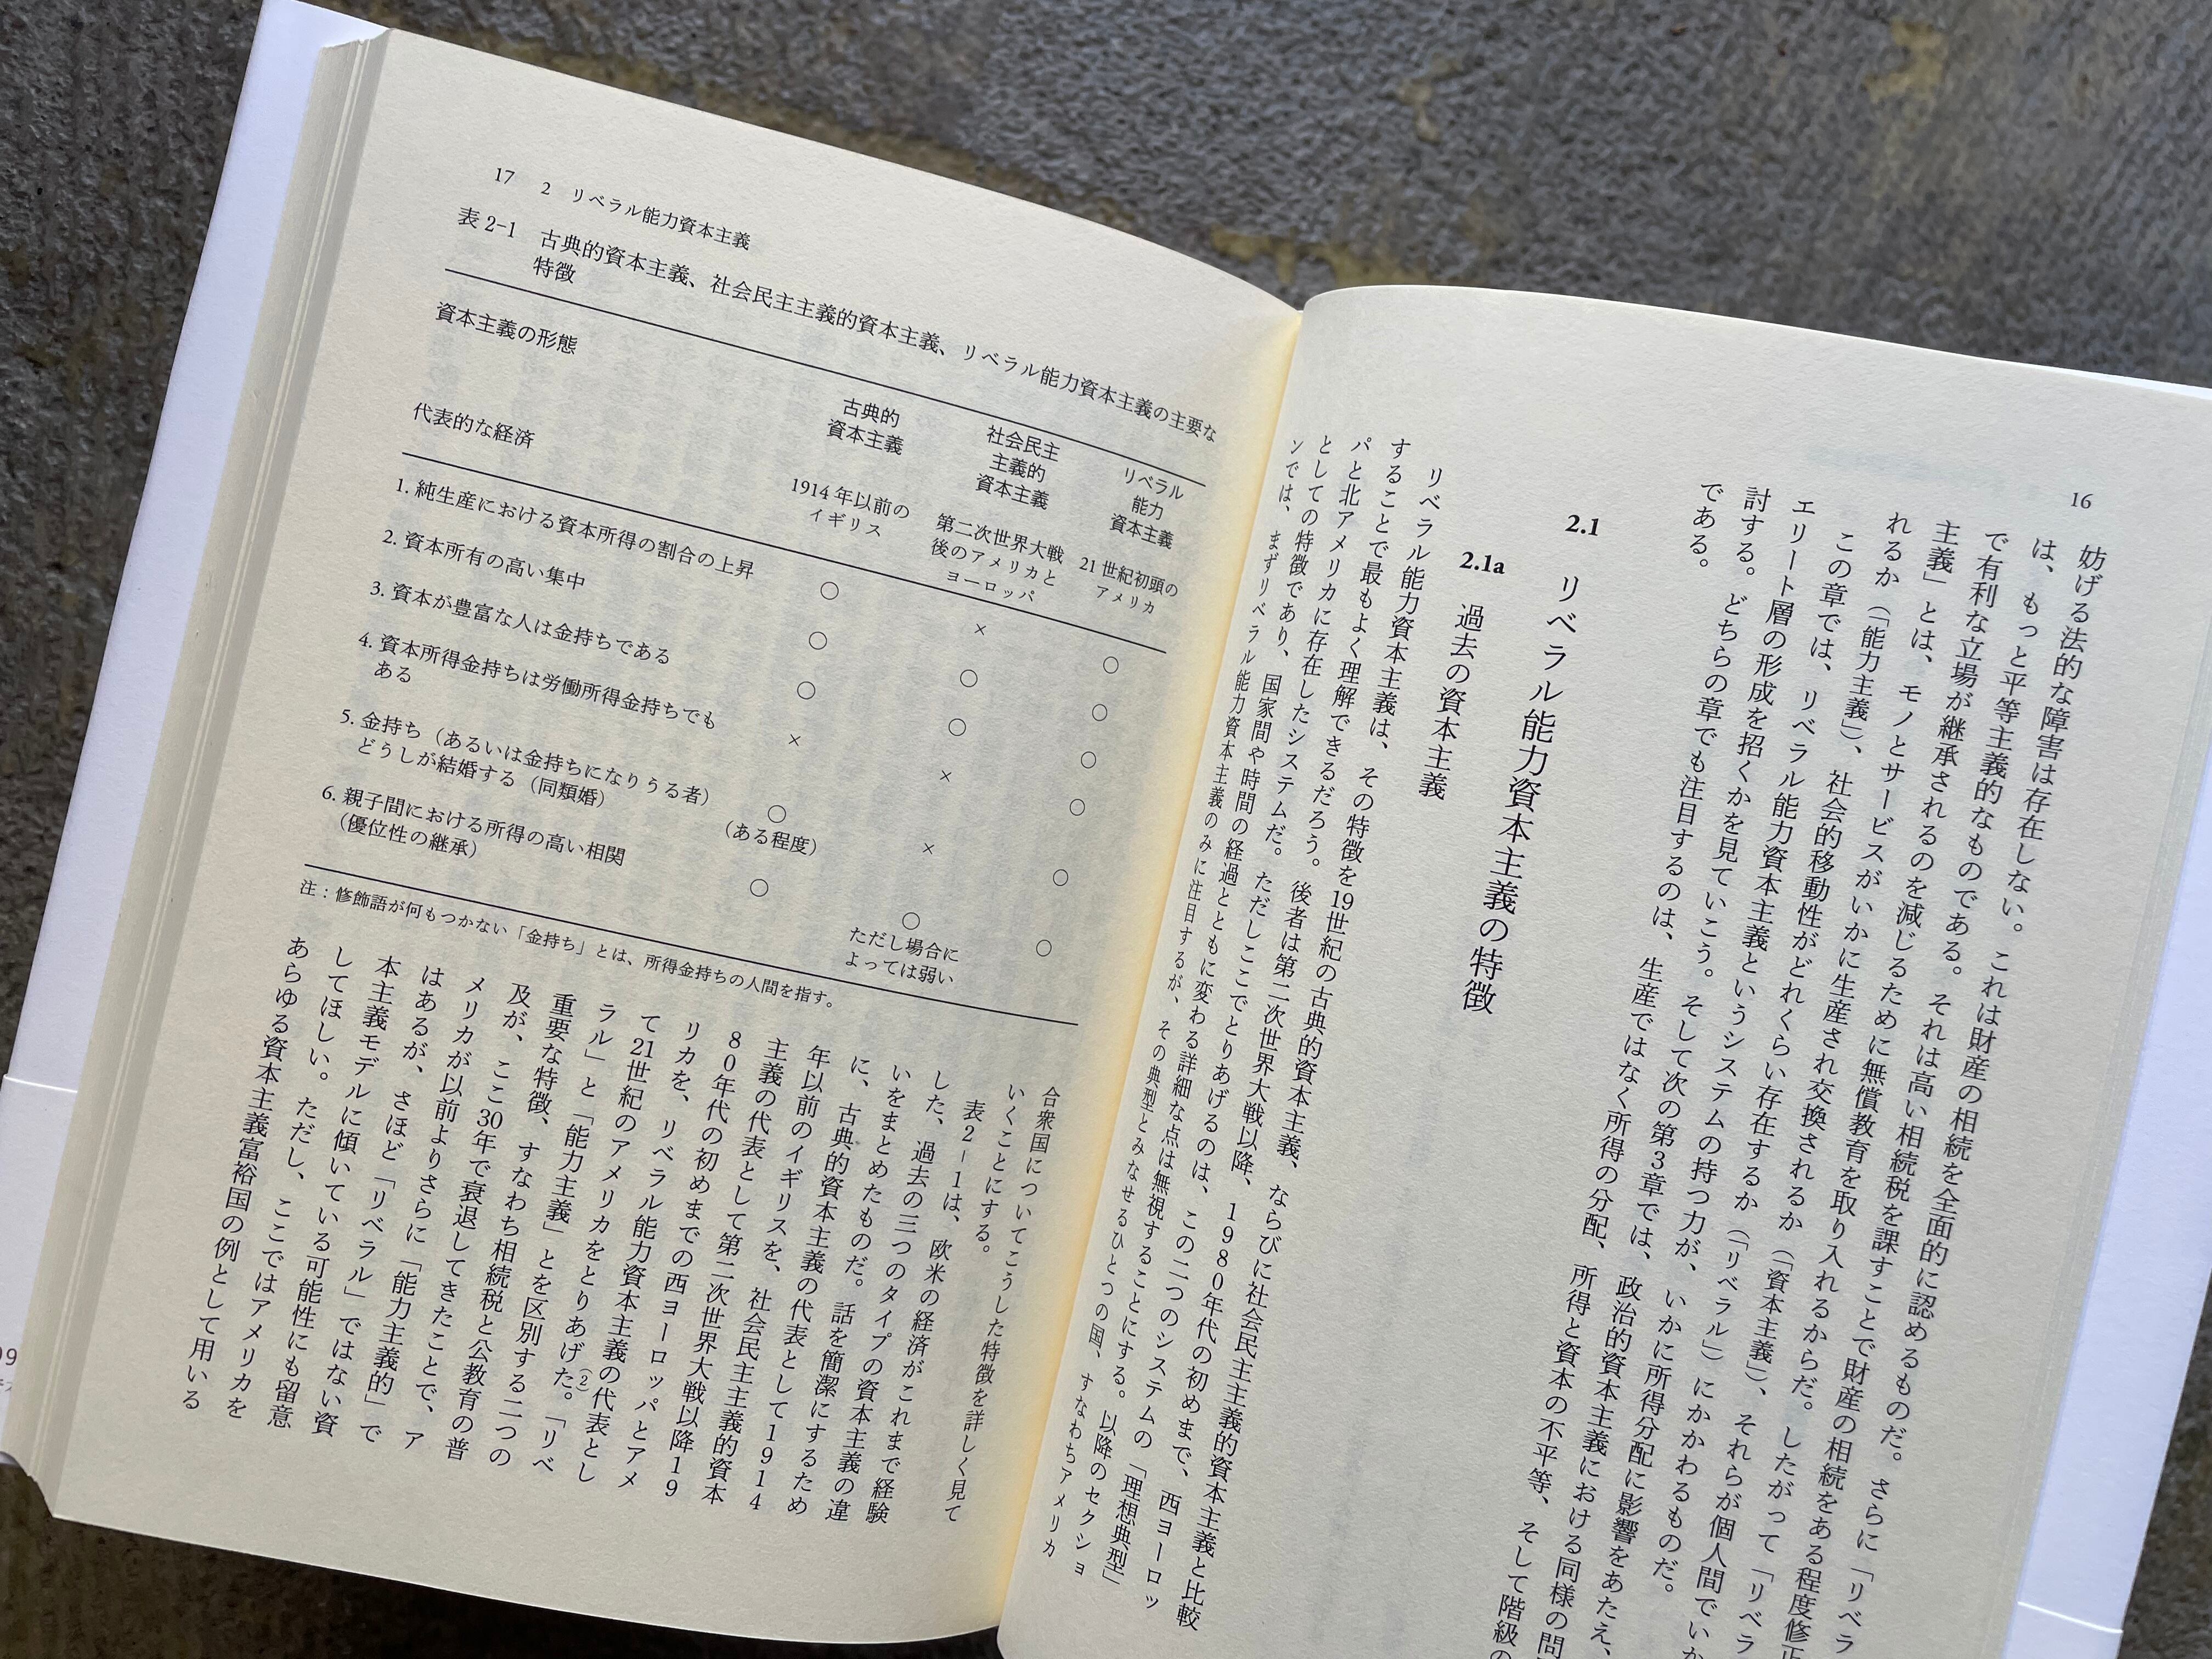 16
妨げる法的な障害は存在しない。これは財産の相続を全面的に認めるものだ。さらに「リベラ
は、もっと平等主義的なものである。それは高い相続税を課すことで財産の相続をある程度修正
で有利な立場が継承されるのを減じるために無償教育を取り入れるからだ。したがって「リベラ
主義」とは、モノとサービスがいかに生産され交換されるか（「資本主義」）、それらが個人間でいか
れるか（「能力主義」）、社会的移動性がどれくらい存在するか（「リベラル」）にかかわるものだ。
この章では、リベラル能力資本主義というシステムの持つ力が、いかに所得分配に影響をあたえ、
エリート層の形成を招くかを見ていこう。そして次の第3章では、政治的資本主義における同様の問
討する。どちらの章でも注目するのは、生産ではなく所得の分配、所得と資本の不平等、そして階級の
である。
2.1 リベラル能力資本主義の特徴
2.1a 過去の資本主義
リベラル能力資本主義は、その特徴を19世紀の古典的資本主義、ならびに社会民主主義的資本主義と比較
することで最もよく理解できるだろう。後者は第二次世界大戦以降、1980年代の初めまで、西ヨーロッ
パと北アメリカに存在したシステムだ。ただしここでとりあげるのは、この二つのシステムの「理想典型」
としての特徴であり、国家間や時間の経過とともに変わる詳細な点は無視することにする。以降のセクショ
ンでは、まずリベラル能力資本主義のみに注目するが、その典型とみなせるひとつの国、すなわちアメリカ
17 2 リベラル能力資本主義
表 2-1 古典的資本主義、社会民主主義的資本主義、リベラル能力資本主義の主要な
特徴
資本主義の形態
古典的
資本主義
社会民主
主義的
資本主義
リベラル
能力
資本主義
代表的な経済
1914年以前の
イギリス
第二次世界大戦
後のアメリカと
ヨーロッパ
21世紀初頭の
アメリカ
1. 純生産における資本所得の割合の上昇 ○ × ○
2. 資本所有の高い集中 ○ ○ ○
3. 資本が豊富な人は金持ちである ○ ○ ○
4. 資本所得金持ちは労働所得金持ちでも
ある × × ○
5. 金持ち（あるいは金持ちになりうる者）
どうしが結婚する（同類婚） ○ × ○
（ある程度）
6. 親子間における所得の高い相関
（優位性の継承） ○ ○ ○
ただし場合に
よっては弱い
注：修飾語が何もつかない「金持ち」とは、所得金持ちの人間を指す。
合衆国についてこうした特徴を詳しく見て
いくことにする。
表2-1は、欧米の経済がこれまで経験
した、過去の三つのタイプの資本主義の違
いをまとめたものだ。話を簡潔にするため
に、古典的資本主義の代表として1914
年以前のイギリスを、社会民主主義的資本
主義の代表として第二次世界大戦以降19
80年代の初めまでの西ヨーロッパとアメ
リカを、リベラル能力資本主義の代表とし
て21世紀のアメリカをとりあげた。(2)「リベ
ラル」と「能力主義」とを区別する二つの
重要な特徴、すなわち相続税と公教育の普
及が、ここ30年で衰退してきたことで、ア
メリカが以前よりさらに「能力主義的」で
はあるが、さほど「リベラル」ではない資
本主義モデルに傾いている可能性にも留意
してほしい。ただし、ここではアメリカを
あらゆる資本主義富裕国の例として用いる